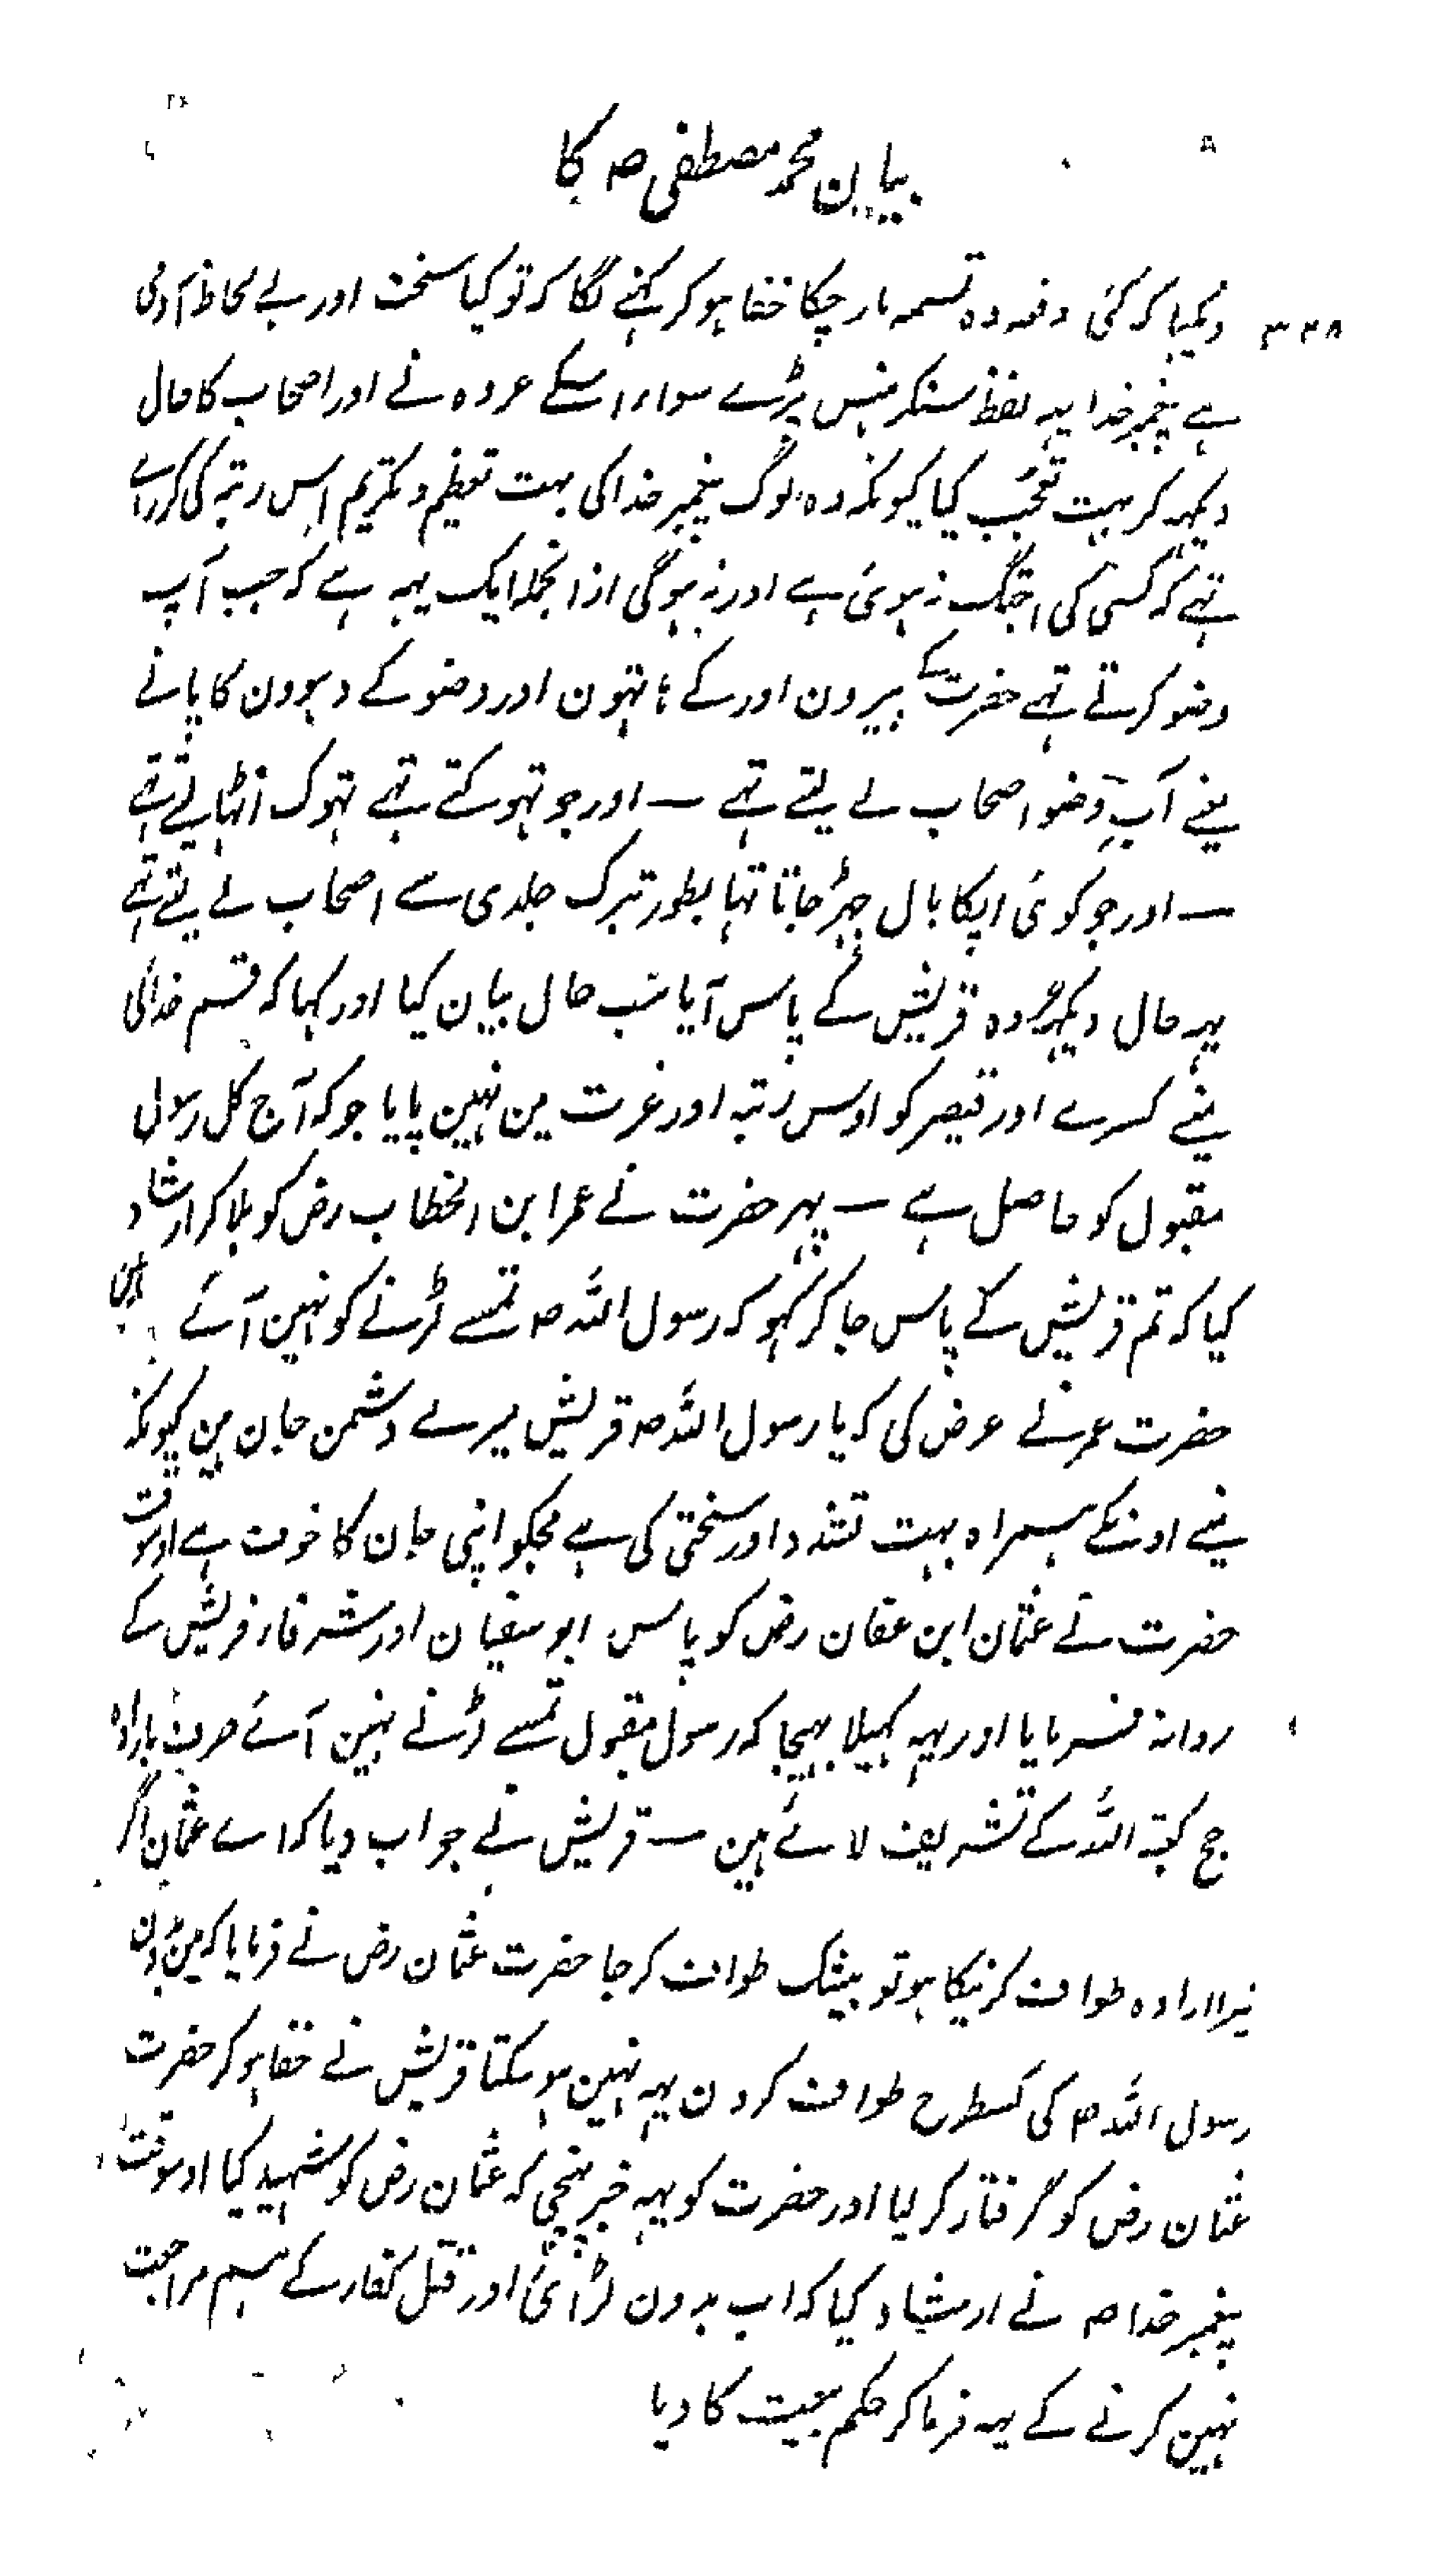 بیان محمد مصطفی ص کا
۳۳۸
دیکہا کہ کئی دفعہ وہ تسمہ مار چکا خفا ہو کر کہنے لگا کہ تو کیا سخت اور بے لحاظ آدمی
ہے پیغمبر خدا یہہ لفظ سنکر ہنس پڑے سواء اسکے عروہ نے اور اصحاب کا حال
دیکہہ کر بہت تعجب کیا کیونکہ وہ لوگ پیغمبر خدا کی بہت تعظیم و تکریم اس رتبہ کی کر رہے
تہے کہ کسی کی اجتک نہ ہوئی ہے اور نہ ہوگی از انجملہ ایک یہہ ہے کہ جب آپ
وضو کرتے تہے حضرت کے پیرون اور کے ہاتہون اور وضو کے دہوون کا پانے
یعنے آبِ وضو اصحاب لے لیتے تہے — اور جو تہوکتے تہے تہوک اٹہا لیتے تہے
— اور جو کوئی آپکا بال جہڑ جاتا تہا بطور تبرک جلدی سے اصحاب لے لیتے تہے
یہہ حال دیکہکر وہ قریش کے پاس آیا سب حال بیان کیا اور کہا کہ قسم خدا کی
مینے کسرے اور قیصر کو اوس رتبہ اور عزت مین نہین پایا جو کہ آج کل رسول
مقبول کو حاصل ہے — پہر حضرت نے عمر ابن الخطاب رض کو بلا کر ارشاد
کیا کہ تم قریش کے پاس جا کر کہو کہ رسول اللہ ص تمسے لڑنے کو نہین آئے
حضرت عمر نے عرض کی کہ یا رسول اللہ ص قریش میرے دشمن جان ہین کیونکہ
مینے اونکے ہمراہ بہت تشدد اور سختی کی ہے مجکو اپنی جان کا خوف ہے اوسوقت
حضرت نے عثمان ابن عفان رض کو پاس ابو سفیان اور شرفاء قریش کے
روانہ فرمایا اور یہہ کہیلا بہیجا کہ رسول مقبول تمسے لڑنے نہین آئے صرف بارادہ
حج کعبۃ اللہ کے تشریف لائے ہین — قریش نے جواب دیا کہ اے عثمان اگر
تیرا ارادہ طواف کرنیکا ہو تو بیشک طواف کر جا حضرت عثمان رض نے فرمایا کہ مین بدون
رسول اللہ ص کی کسطرح طواف کرون یہہ نہین ہو سکتا قریش نے خفا ہو کر حضرت
عثمان رض کو گرفتار کر لیا اور حضرت کو یہہ خبر پہنچی کہ عثمان رض کو شہید کیا اوسوقت
پیغمبر خدا ص نے ارشاد کیا کہ اب بدون لڑائی اور قتل کفار کے ہم مراجعت
نہین کرنے کے یہہ فرما کر حکم بیعت کا دیا